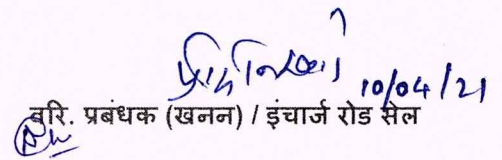 10/04/21
वरि. प्रबंधक (खनन) / इंचार्ज रोड सेल